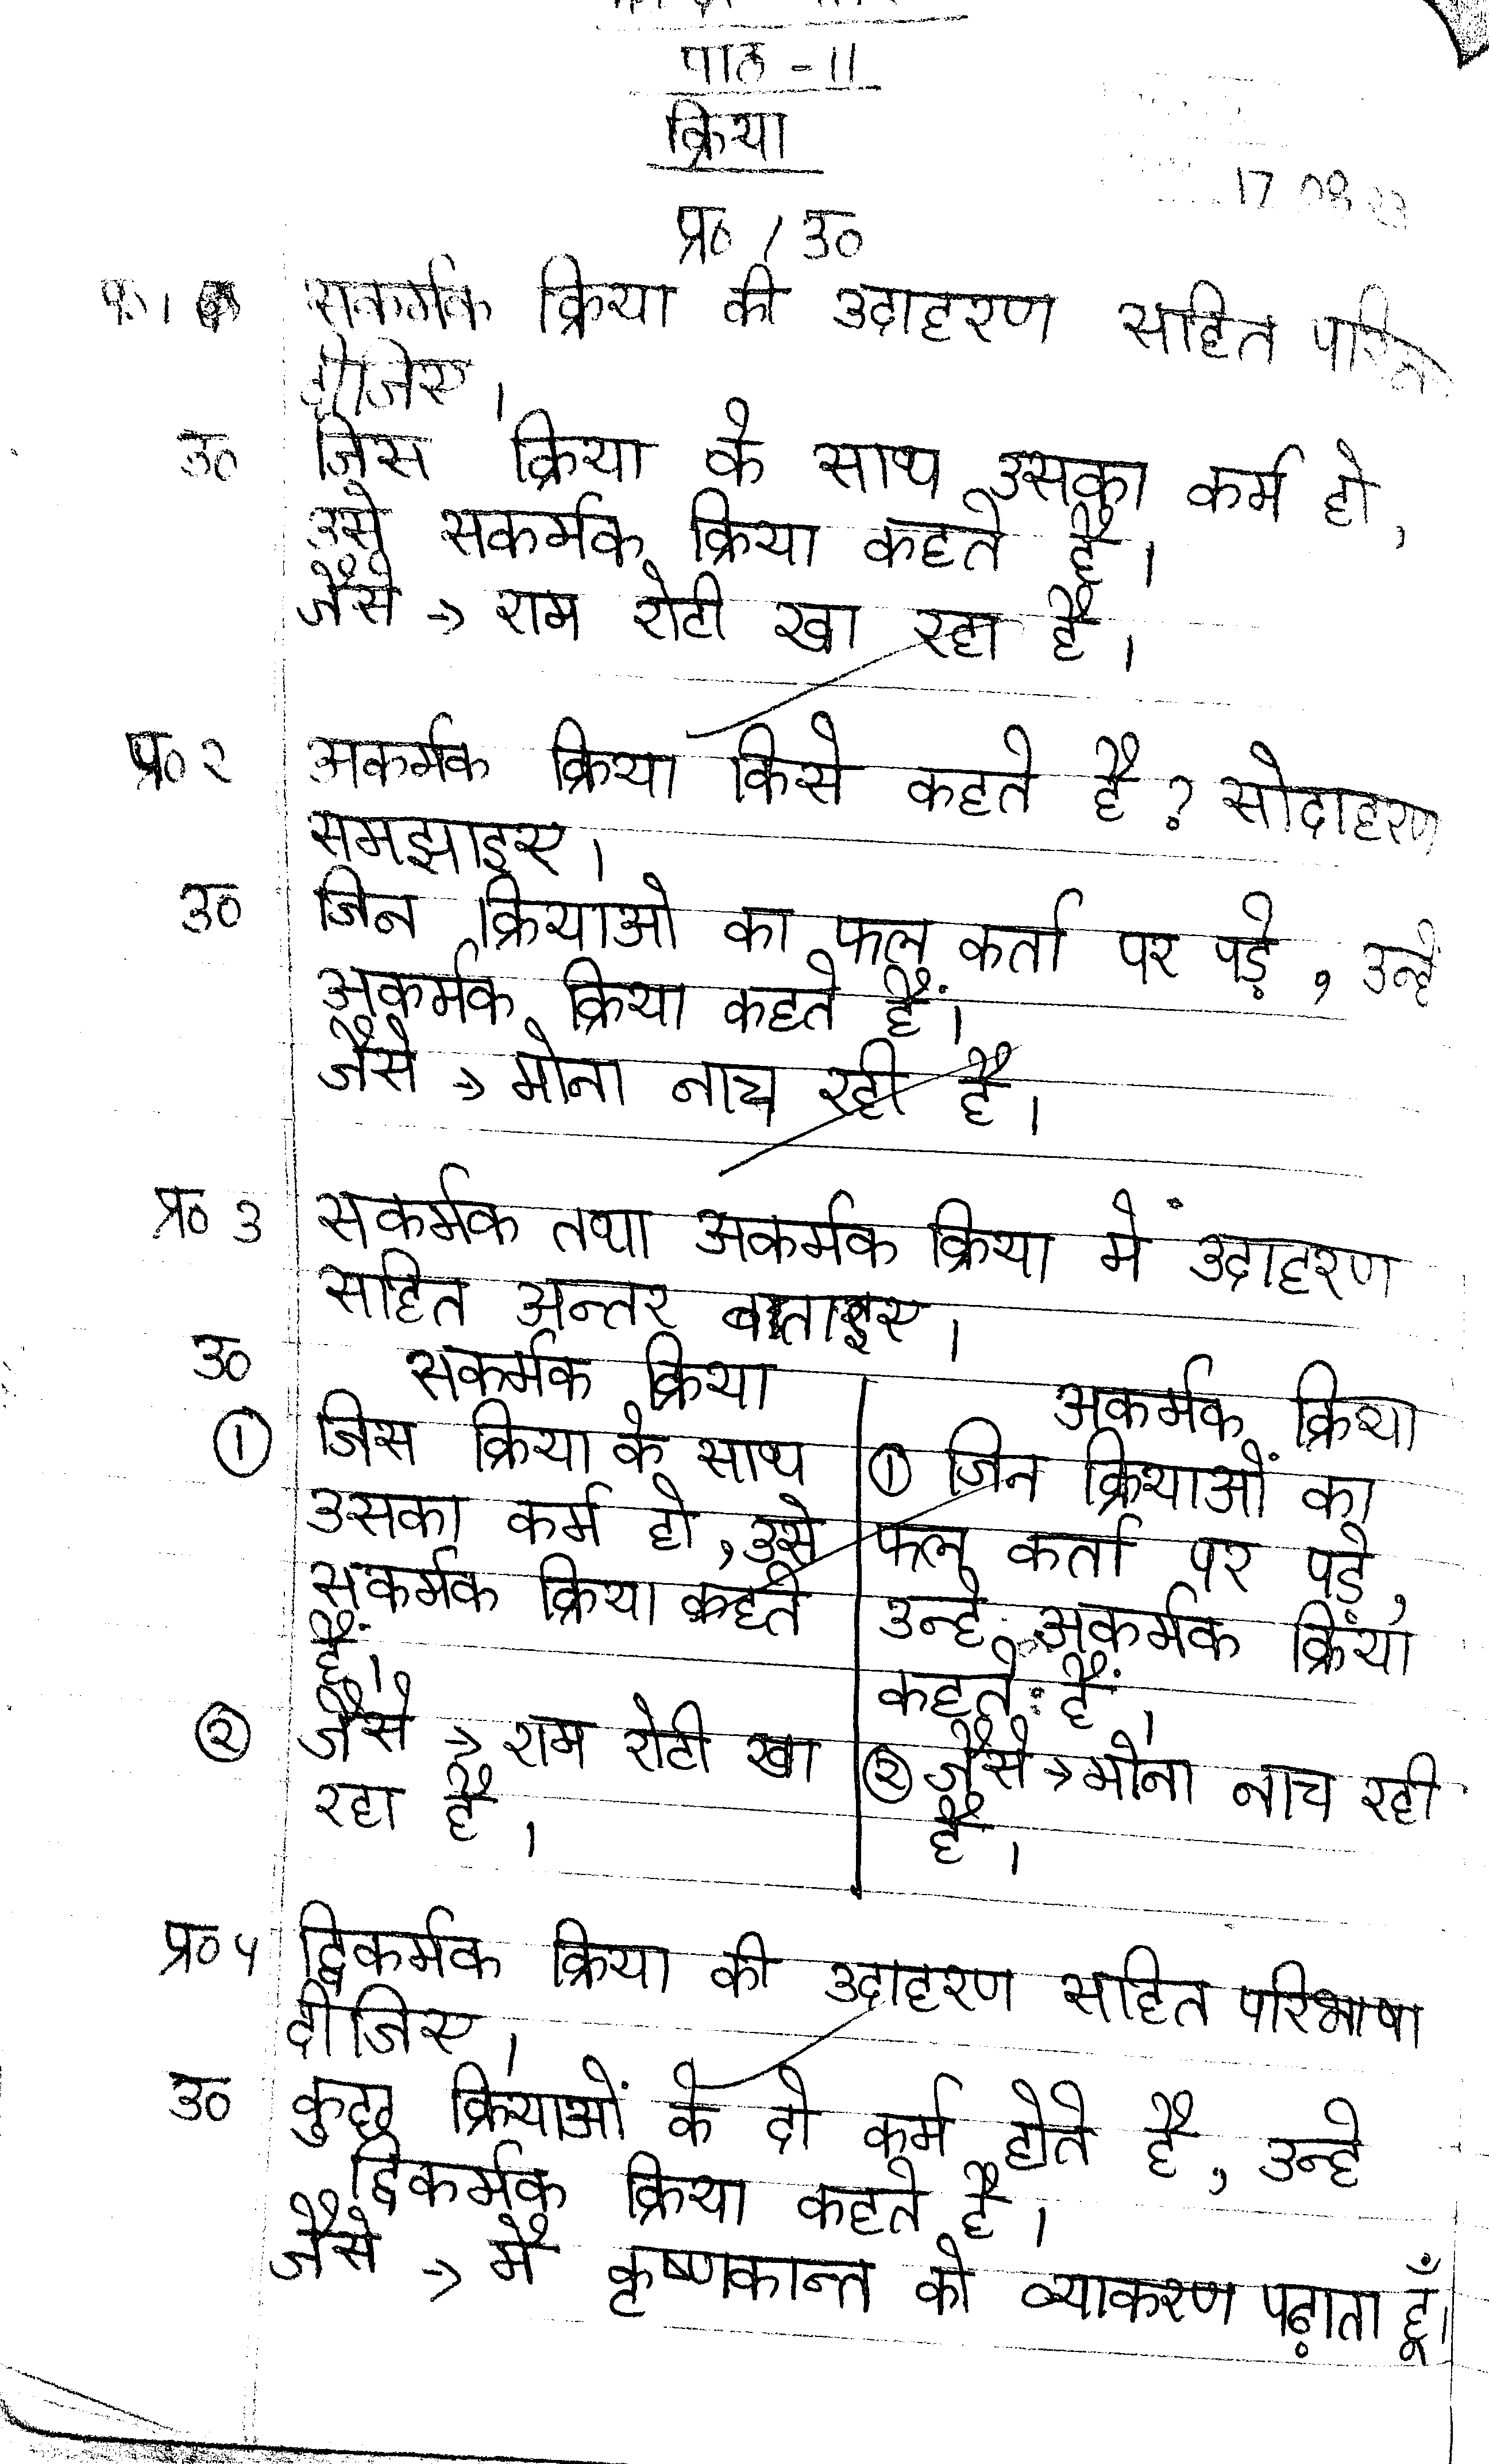 पाठ - 11
क्रिया
17 08 23
प्र० / उ०
सकर्मक क्रिया की उदाहरण सहित
दीजिए।
उ० जिस क्रिया के साथ उसका कर्म हो,
उसे सकर्मक क्रिया कहते है।
जैसे → राम रोटी खा रहा है।
प्र० २ अकर्मक क्रिया किसे कहते है? सोदाहरण
समझाइए।
उ० जिन क्रियाओ का फल कर्ता पर पड़े, उन्हें
अकर्मक क्रिया कहते हैं।
जैसे → मोना नाच रही है।
प्र० ३ सकर्मक तथा अकर्मक क्रिया में उदाहरण
सहित अन्तर बताइए।
उ० सकर्मक क्रिया
① जिस क्रिया के साथ
उसका कर्म हो, उसे
सकर्मक क्रिया कहते
हैं।
② जैसे → राम रोटी खा
रहा है।
अकर्मक क्रिया
① जिन क्रियाओं का
फल कर्ता पर पड़े,
उन्हे अकर्मक क्रिया
कहते हैं।
② जैसे → मोना नाच रही
है।
प्र० ५ द्विकर्मक क्रिया की उदाहरण सहित परिभाषा
दीजिए।
उ० कुछ क्रियाओं के दो कर्म होते है, उन्हे
द्विकर्मक क्रिया कहते है।
जैसे → मै कृष्णकान्त को व्याकरण पढ़ाता हूँ।